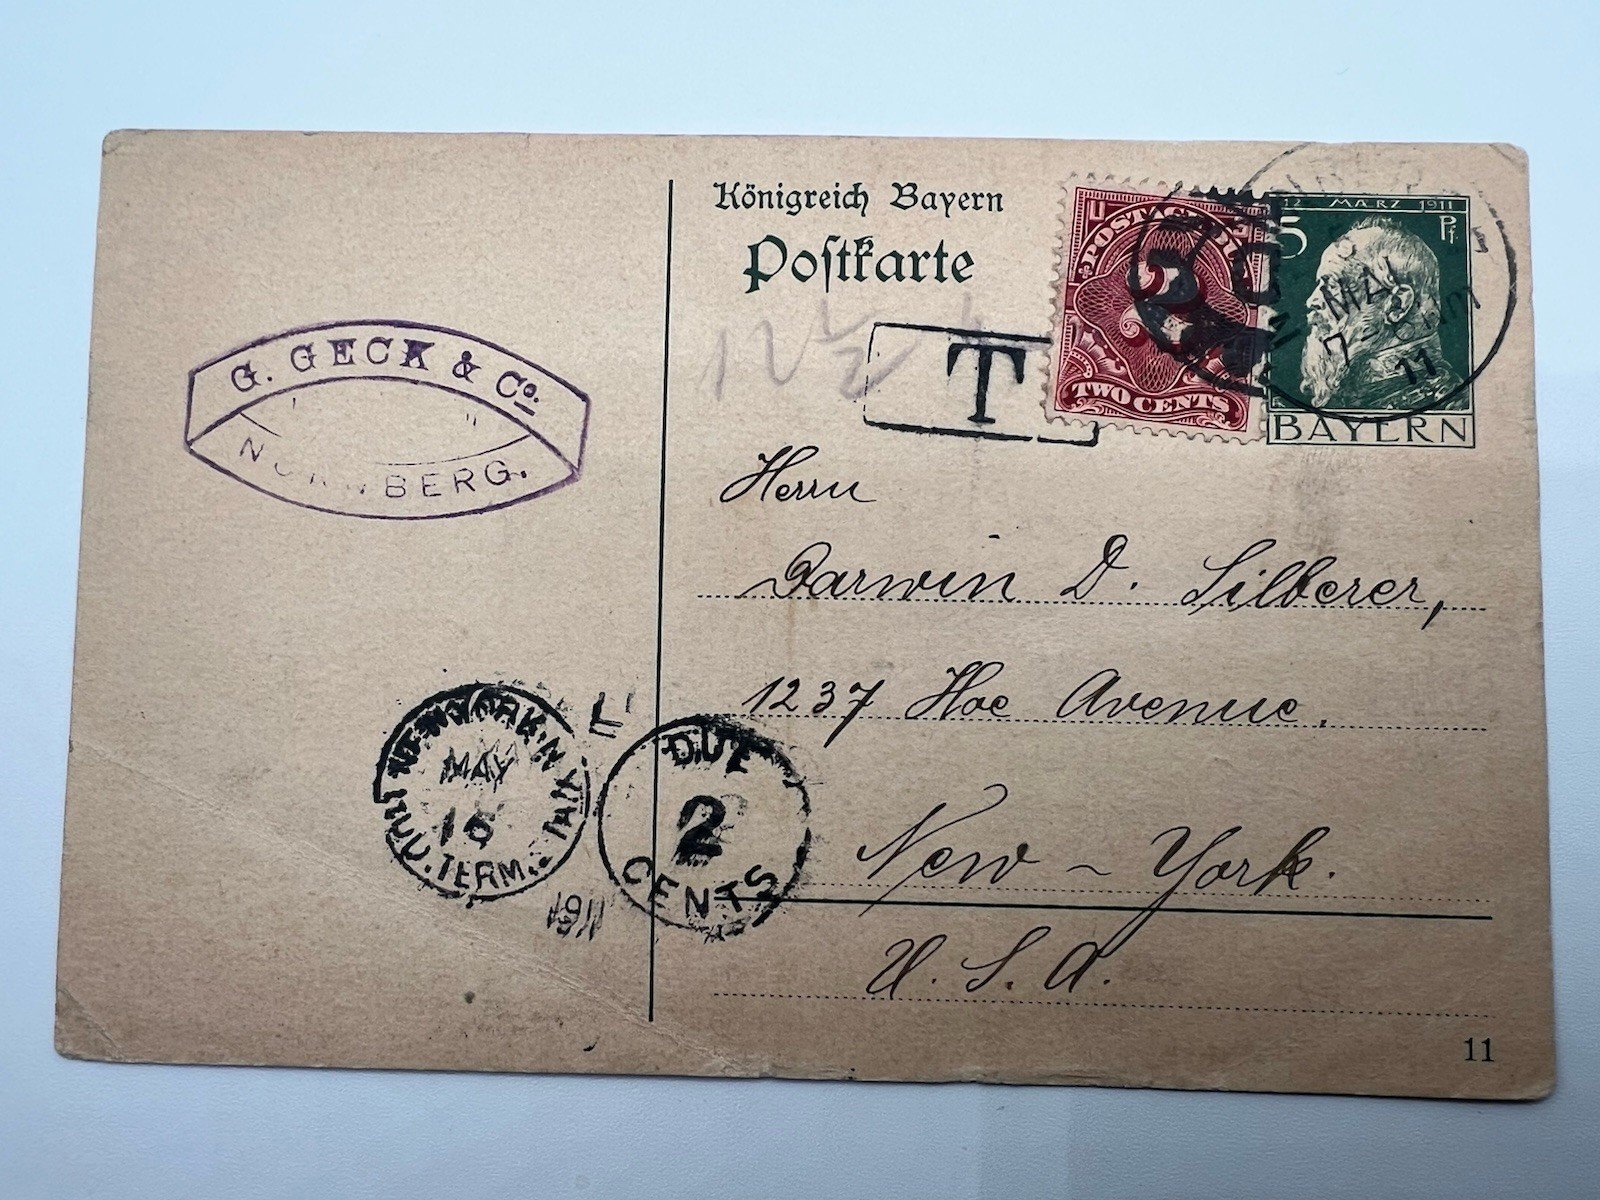 Königreich Bayern
Postkarte
12 MÄRZ 1911
5 Pf.
BAYERN
POSTAGE DUE
2
TWO CENTS
5 MAI
7-8 Nm
11
12½
T
G. GECK & Co.
NÜRNBERG.
Herrn
Darwin D. Silberer,
1237 Hoe Avenue.
New-York.
U.S.A.
NEW YORK, N.Y.
MAY
TERM.
1911
DUE
2
CENTS
11